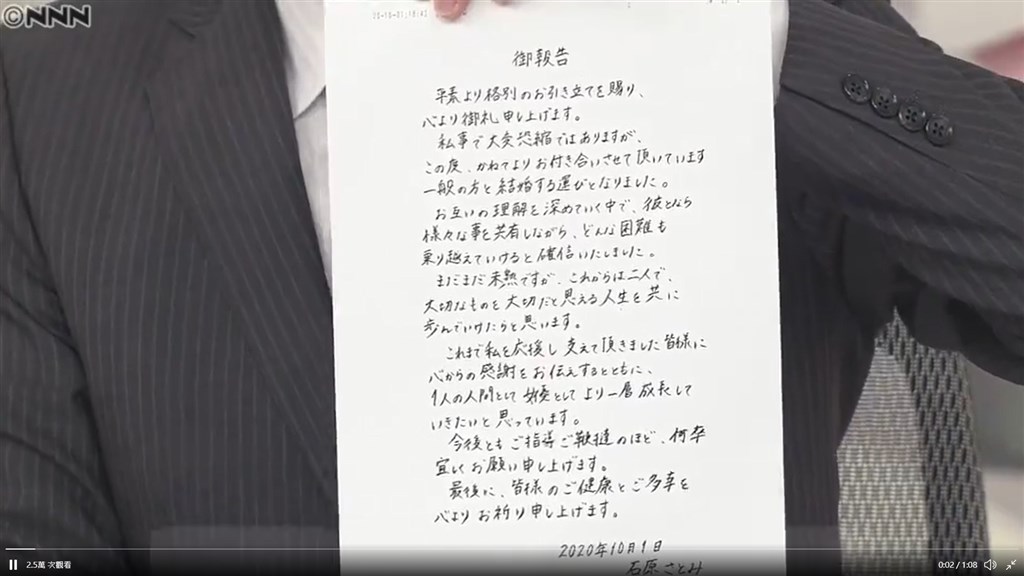 ©NNN
御報告
平素より格別のお引き立てを賜り、
心より御礼申し上げます。
私事で大変恐縮ではありますが、
この度、かねてよりお付き合いさせて頂いています
一般の方と結婚する運びとなりました。
お互いの理解を深めていく中で、彼となら
様々な事を共有しながら、どんな困難も
乗り越えていけると確信いたしました。
まだまだ未熟ですが、これからは二人で、
大切なものを大切だと思える人生を共に
歩んでいけたらと思います。
これまで私を応援し支えて頂きました皆様に
心からの感謝をお伝えするとともに、
1人の人間として 女優として より一層成長して
いきたいと思っています。
今後ともご指導ご鞭撻のほど、何卒
宜しくお願い申し上げます。
最後に、皆様のご健康とご多幸を
心よりお祈り申し上げます。
2020年10月1日
石原さとみ
2.5萬 次觀看
0:02 / 1:08